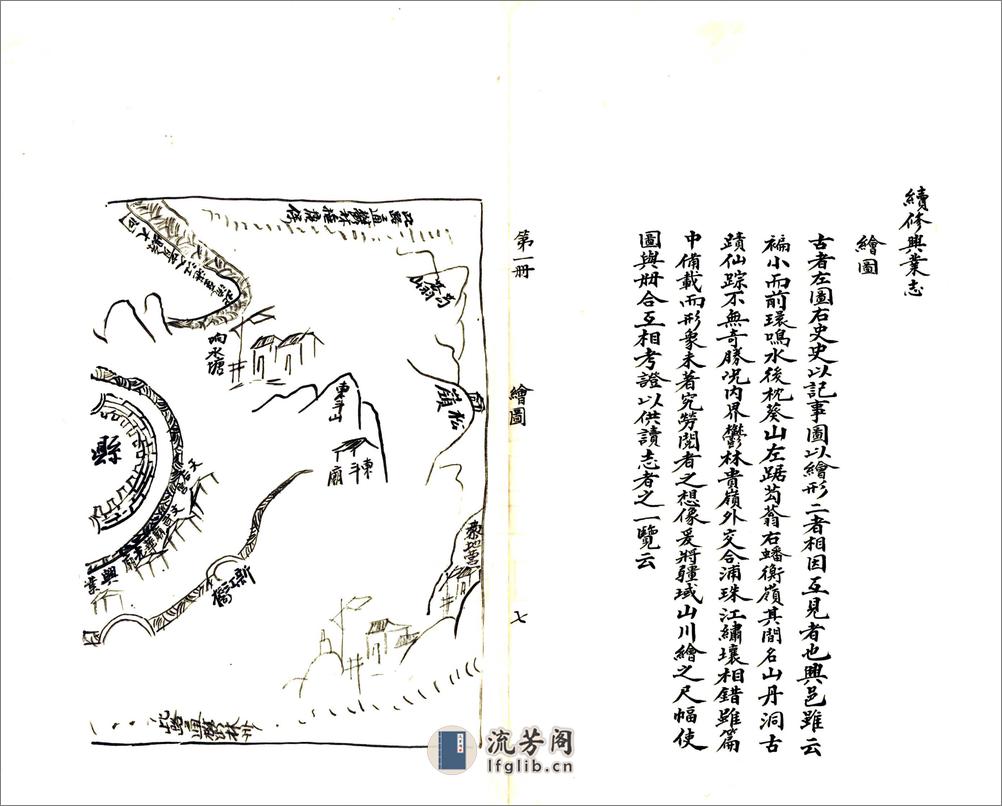 續修興業志
繪圖
古者左圖右史史以記事圖以繪形二者相因互見者也興邑雖云
褊小而前環鳴水後枕葵山左踞芶蓊右蟠衡嶺其間名山丹洞古
蹟仙踪不無奇勝況内界鬱林貴嶺外交合浦珠江繡壤相錯雖篇
中備載而形象未著究勞閱者之想像爰將疆域山川繪之尺幅使
圖與册合互相考證以供讀志者之一覽云
第一册
繪圖
七
松嶺
東斗山
東斗廟
响水塘
縣
天后宮
文昌廟
興業
橋
此路通鬱林州
流芳阁
lfglib.cn